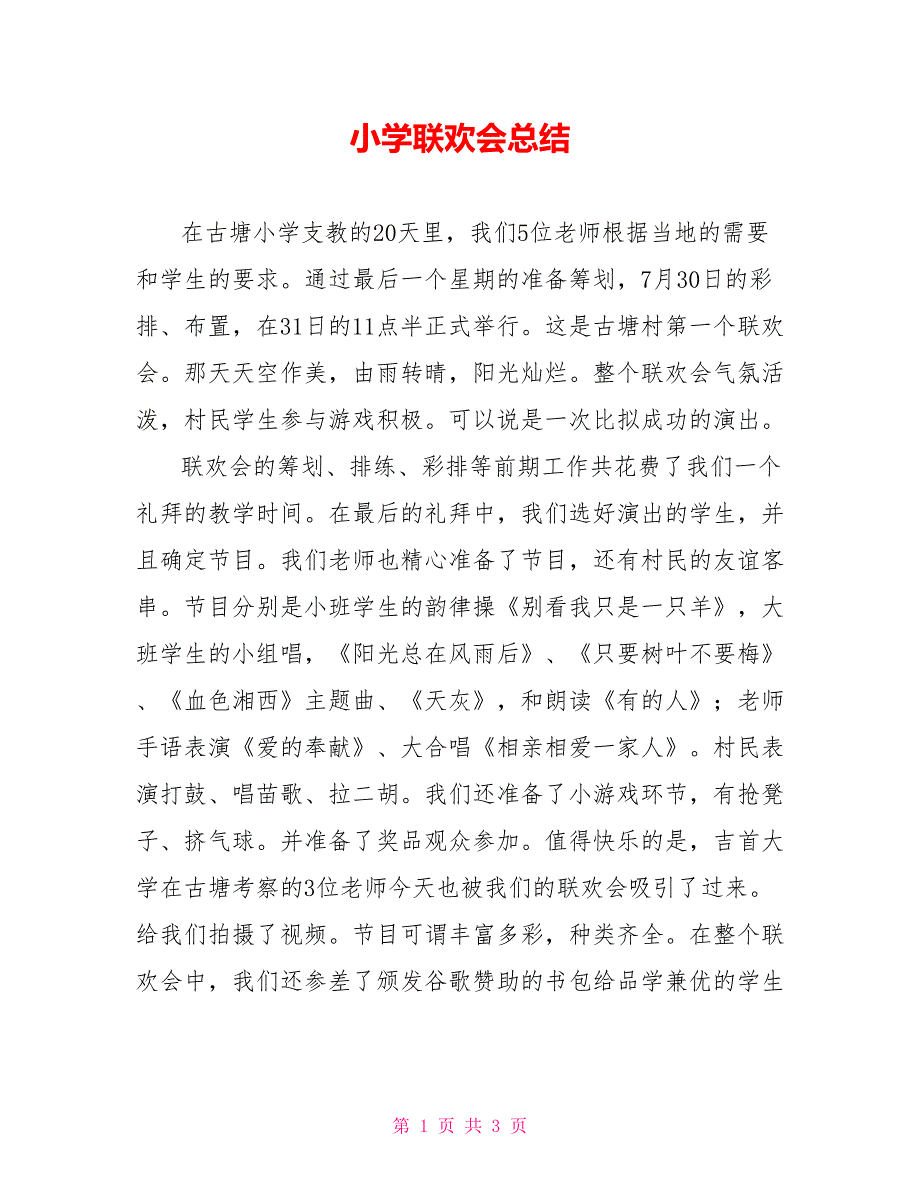 小学联欢会总结
在古塘小学支教的20天里，我们5位老师根据当地的需要
和学生的要求。通过最后一个星期的准备筹划，7月30日的彩
排、布置，在31日的11点半正式举行。这是古塘村第一个联欢
会。那天天空作美，由雨转晴，阳光灿烂。整个联欢会气氛活
泼，村民学生参与游戏积极。可以说是一次比拟成功的演出。
联欢会的筹划、排练、彩排等前期工作共花费了我们一个
礼拜的教学时间。在最后的礼拜中，我们选好演出的学生，并
且确定节目。我们老师也精心准备了节目，还有村民的友谊客
串。节目分别是小班学生的韵律操《别看我只是一只羊》，大
班学生的小组唱，《阳光总在风雨后》、《只要树叶不要梅》
、《血色湘西》主题曲、《天灰》，和朗读《有的人》；老师
手语表演《爱的奉献》、大合唱《相亲相爱一家人》。村民表
演打鼓、唱苗歌、拉二胡。我们还准备了小游戏环节，有抢凳
子、挤气球。并准备了奖品观众参加。值得快乐的是，吉首大
学在古塘考察的3位老师今天也被我们的联欢会吸引了过来。
给我们拍摄了视频。节目可谓丰富多彩，种类齐全。在整个联
欢会中，我们还参差了颁发谷歌赞助的书包给品学兼优的学生
第 1 页 共 3 页